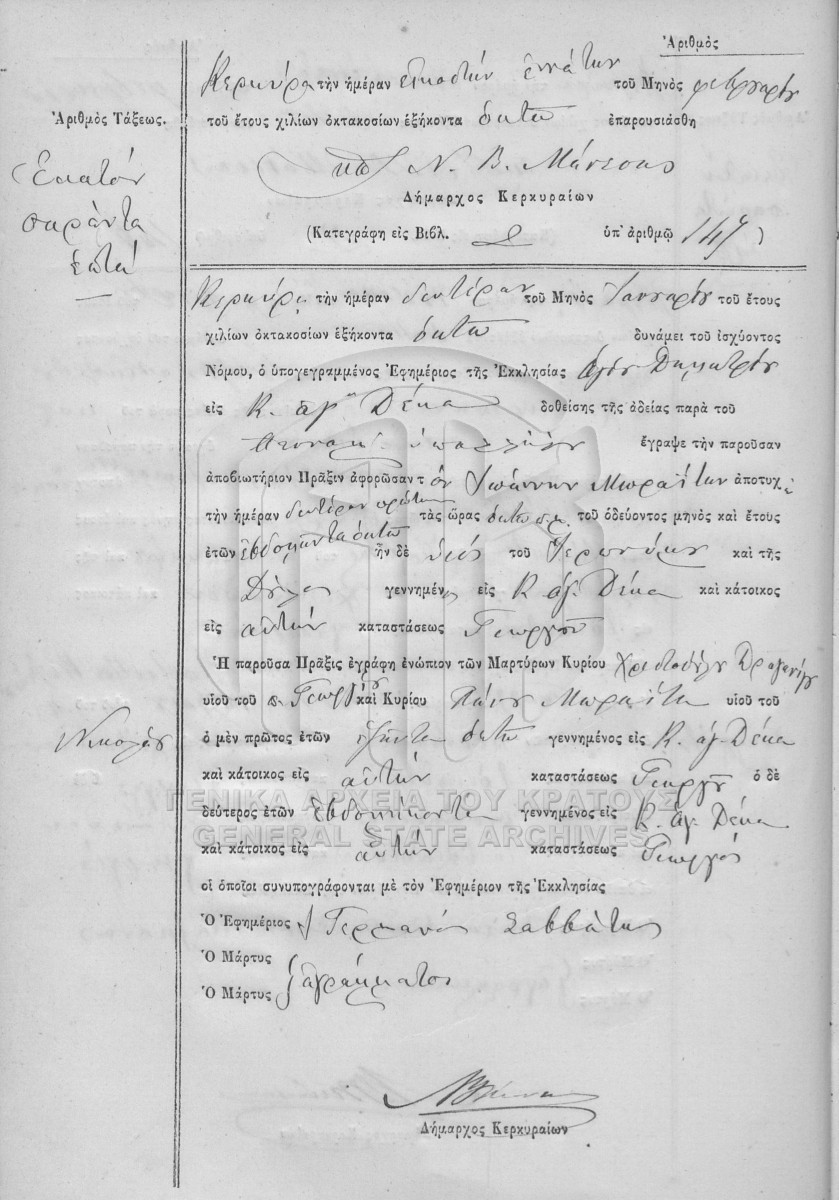 Ἀριθμὸς
Κερκύρα τὴν ἡμέραν εἰκοστὴν ἐννάτην τοῦ Μηνὸς φεβρουαρίου
Ἀριθμὸς Τάξεως.
τοῦ ἔτους χιλίων ὀκτακοσίων ἑξήκοντα ὀκτὼ ἐπαρουσιάσθη
Ἑκατὸν
σαράντα
ἑπτά
Ν. Β. Μάνεσης
Δήμαρχος Κερκυραίων
(Κατεγράφη εἰς Βιβλ. 2 ὑπ' ἀριθμῷ 147)
Κερκύρᾳ τὴν ἡμέραν δευτέραν τοῦ Μηνὸς Ἰανουαρίου τοῦ ἔτους
χιλίων ὀκτακοσίων ἑξήκοντα ὀκτὼ δυνάμει τοῦ ἰσχύοντος
Νόμου, ὁ ὑπογεγραμμένος Ἐφημέριος τῆς Ἐκκλησίας ἁγίου Δημητρίου
εἰς Κ. ἁγ. Δέκα δοθείσης τῆς ἀδείας παρὰ τοῦ
ἀστυνομικ. ὑπαλλήλου ἔγραψε τὴν παροῦσαν
ἀποβιωτήριον Πρᾶξιν ἀφορῶσαν τὸν Ἰωάννην Μωραΐταν ἀποτυχ
τὴν ἡμέραν δευτέραν πρώτην τὰς ὥρας ὀκτὼ π.μ. τοῦ ὁδεύοντος μηνὸς καὶ ἔτους
ἐτῶν ἑβδομῆντα ὀκτὼ ἦν δὲ υἱός τοῦ καὶ τῆς
γεννημένος εἰς Κ. ἁγ. Δέκα καὶ κάτοικος
εἰς αὐτὴν καταστάσεως Γεωργοῦ
Ἡ παροῦσα Πρᾶξις ἐγράφη ἐνώπιον τῶν Μαρτύρων Κυρίου Χριστοδούλου
υἱοῦ τοῦ π. Γεωργίου καὶ Κυρίου Πάνου Μωραΐτα υἱοῦ τοῦ
Νικολάου
ὁ μὲν πρῶτος ἐτῶν ἑξῆντα ὀκτὼ γεννημένος εἰς Κ. ἁγ. Δέκα
καὶ κάτοικος εἰς αὐτὴν καταστάσεως Γεωργοῦ ὁ δὲ
δεύτερος ἐτῶν ἑβδομήκοντα γεννημένος εἰς Κ. ἁγ. Δέκα
καὶ κάτοικος εἰς αὐτὴν καταστάσεως Γεωργός
οἱ ὁποῖοι συνυπογράφονται μὲ τὸν Ἐφημέριον τῆς Ἐκκλησίας
Ὁ Ἐφημέριος Γερμανός Σαββάτης
Ὁ Μάρτυς
Ὁ Μάρτυς ἀγράμματοι
Δήμαρχος Κερκυραίων
ΓΕΝΙΚΑ ΑΡΧΕΙΑ ΤΟΥ ΚΡΑΤΟΥΣ
GENERAL STATE ARCHIVES